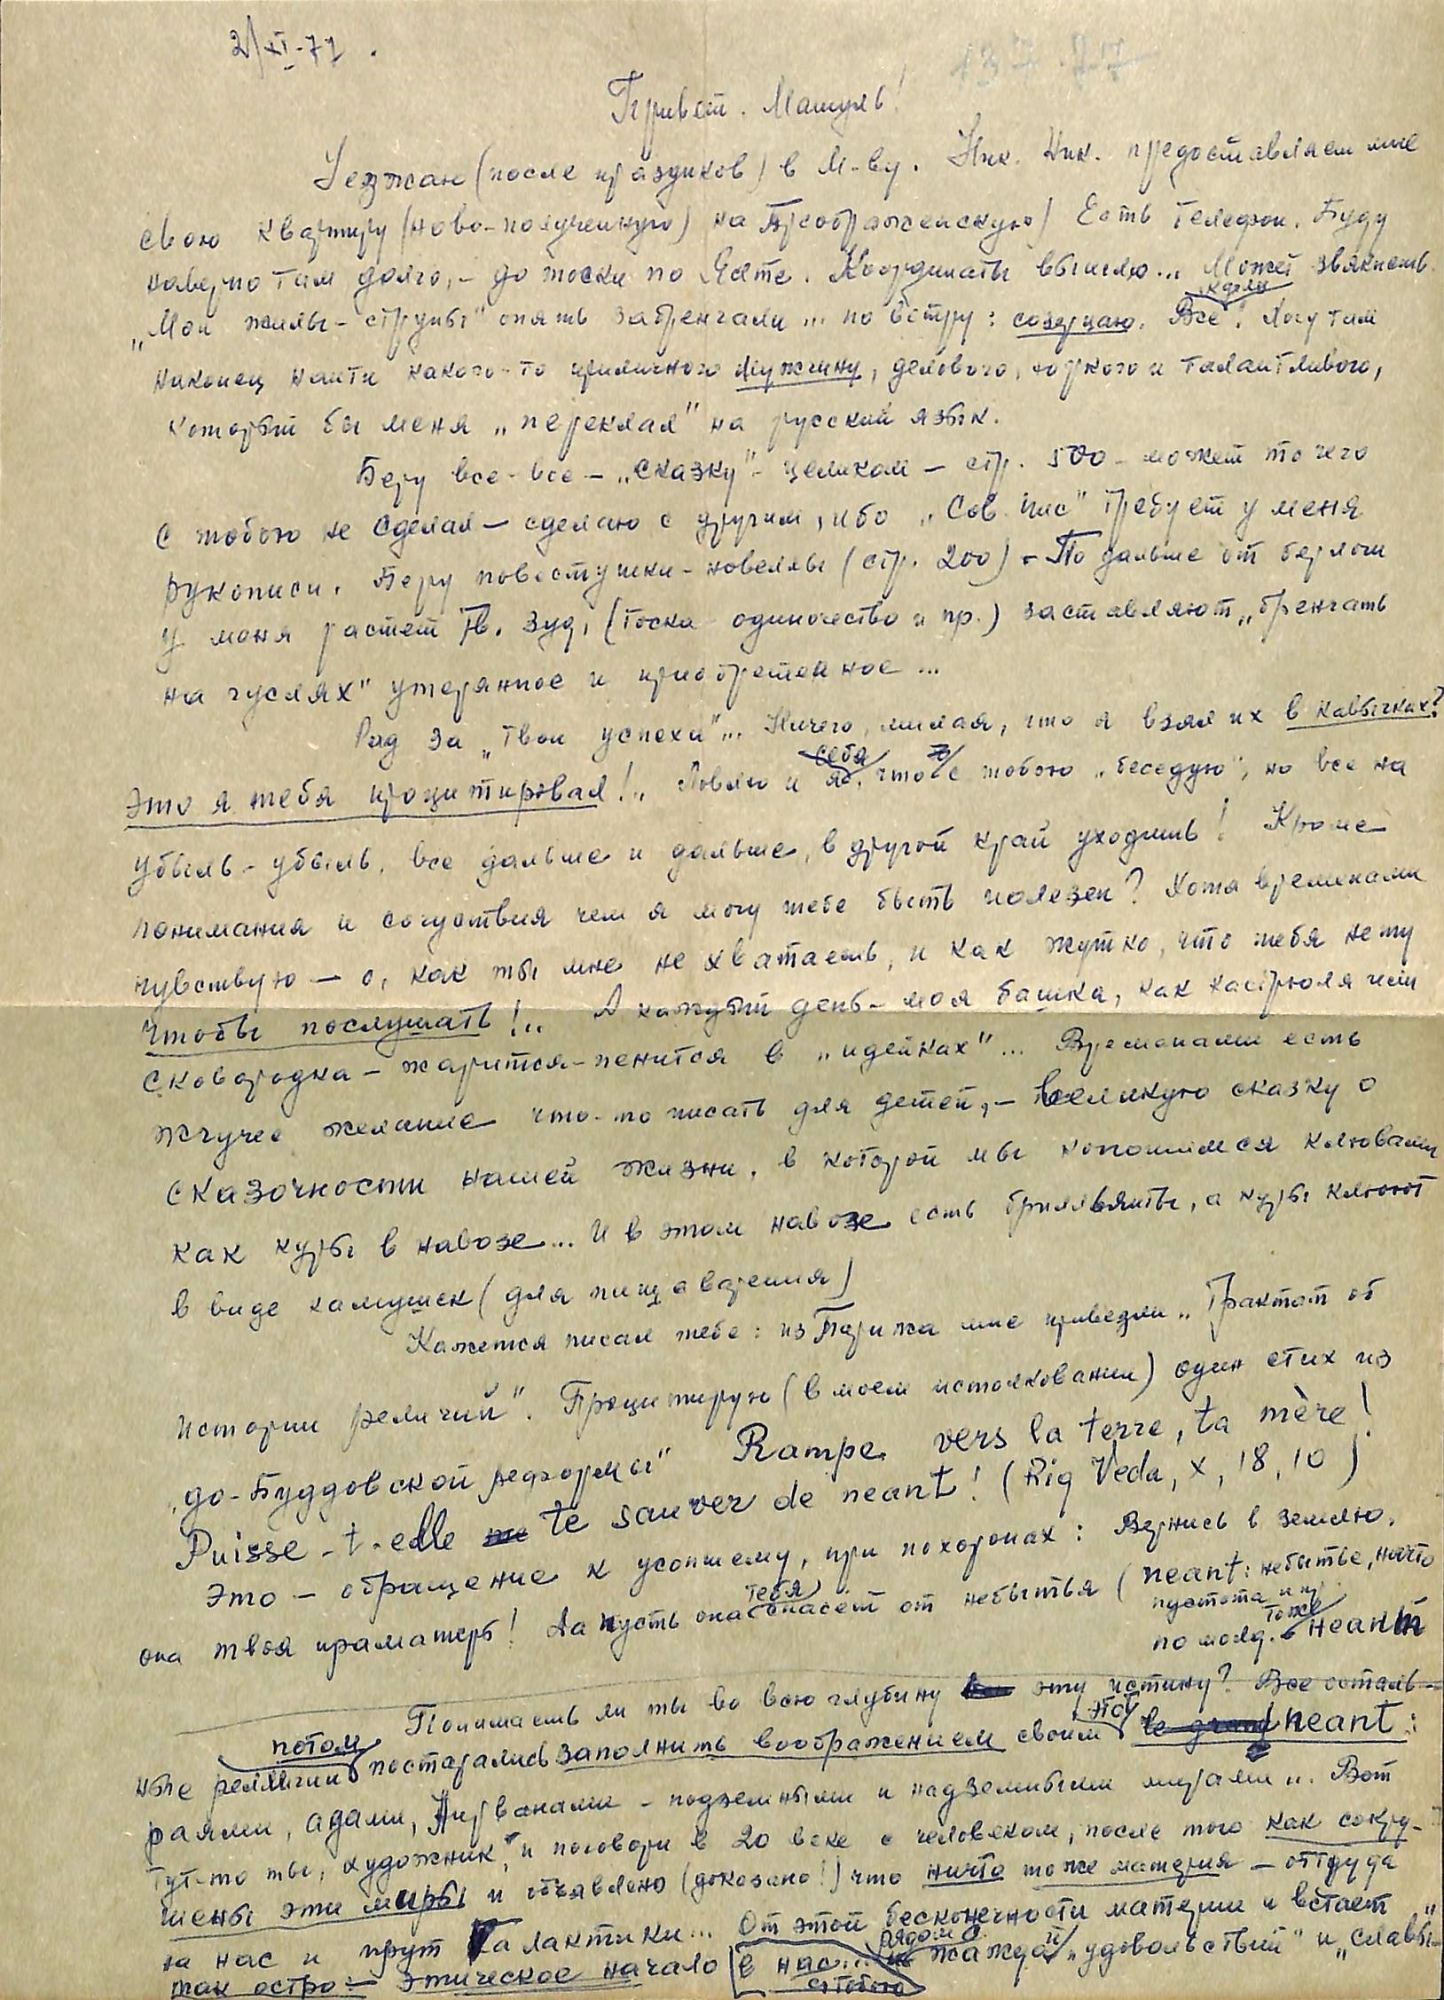 2/XI-77.
Привет. Машуль!
Уезжаю (после праздиков) в М-ву. Ник. Ник. предоставляет мне
свою квартиру (ново-полученную) на Преображенскую) Есть телефон. Буду
наверно там долго, - до тоски по Ялте. Координаты вышлю... Может звякнешь.
„Мои жилы-струны" опять забренчали... по ветру: созерцаю. Все! Хочу там
наконец найти какого-то приличного мужчину, делового, зоркого и талантливого,
который бы меня „переклал" на русский язык.
Беру все-все - „Сказку" - целиком - стр. 500 - может то чего
с тобою не сделал - сделаю с другим, ибо „Сов. пис" требует у меня
рукописи. Беру повестушки-новеллы (стр. 200) - По дальше от берлоги
у меня растет тв. зуд, (тоска одиночество и пр.) заставляют „бренчать
на гуслях" утерянное и приобретенное...
Рад за „твои успехи"... Ничего, милая, что я взял их в кавычках?
Это я тебя процитировал!.. Ловлю и себя, что с тобою „беседую", но все на
убыль-убыль, все дальше и дальше, в другой край уходишь! Кроме
понимания и сочуствия чем я могу тебе быть полезен? Хотя временами
чувствую - о, как ты мне не хватаешь, и как жутко, что тебя нету
чтобы послушать!.. А каждый день - моя башка, как кастрюля или
сковородка - жарится-пенится в „идейках"... Временами есть
жгучее желание что-то писать для детей, - великую сказку о
сказочности нашей жизни, в которой мы копошимся клювами
как куры в навозе... И в этом навозе есть брилльянты, а куры клюют
в виде камушек (для пищаварения)
Кажется писал тебе: из Парижа мне привезли „Трактат об
истории религий". Процитирую (в моем истолковании) один стих из
„до-Буддовской реформы" Rampe vers la terre, ta mère!
Puisse-t-elle te sauver de neant! (Rig Veda, X, 18, 10)
Это - обращение к усопшему, при похоронах: Вернись в землю,
она твоя праматерь! Да пусть она тебя спасет от небытья (neant: небытье, ничто
пустота и
по молд. тоже неант
Понимаешь ли ты во всю глубину эту истину? Все осталь-
ные религии потом постарались заполнить воображением своим этот neant:
раями, адами, Нирванами - подземными и надземными мирами.. Вот
тут-то ты, художник, и поговори в 20 веке с человеком, после того как сокру-
шены эти миры и объявлено (доказано!) что ничто тоже материя - оттуда
на нас и прут Галактики... От этой бесконечности материи и встает
так остро - этическое начало в нас... рядом с жаждой „удовольствий" и „славы"